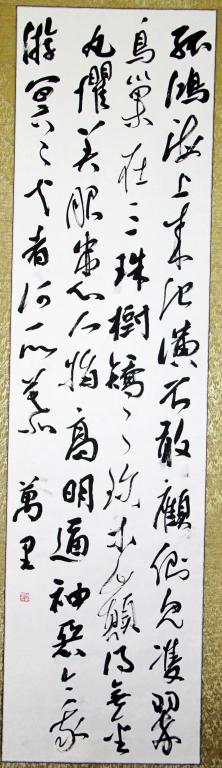 孤鴻海上来池潢不敢顧側見雙翠
鳥巢在三珠樹矯々珍木巔得無金
丸懼美服患人指高明逼神惡今我
游冥々弋者何所慕
萬里